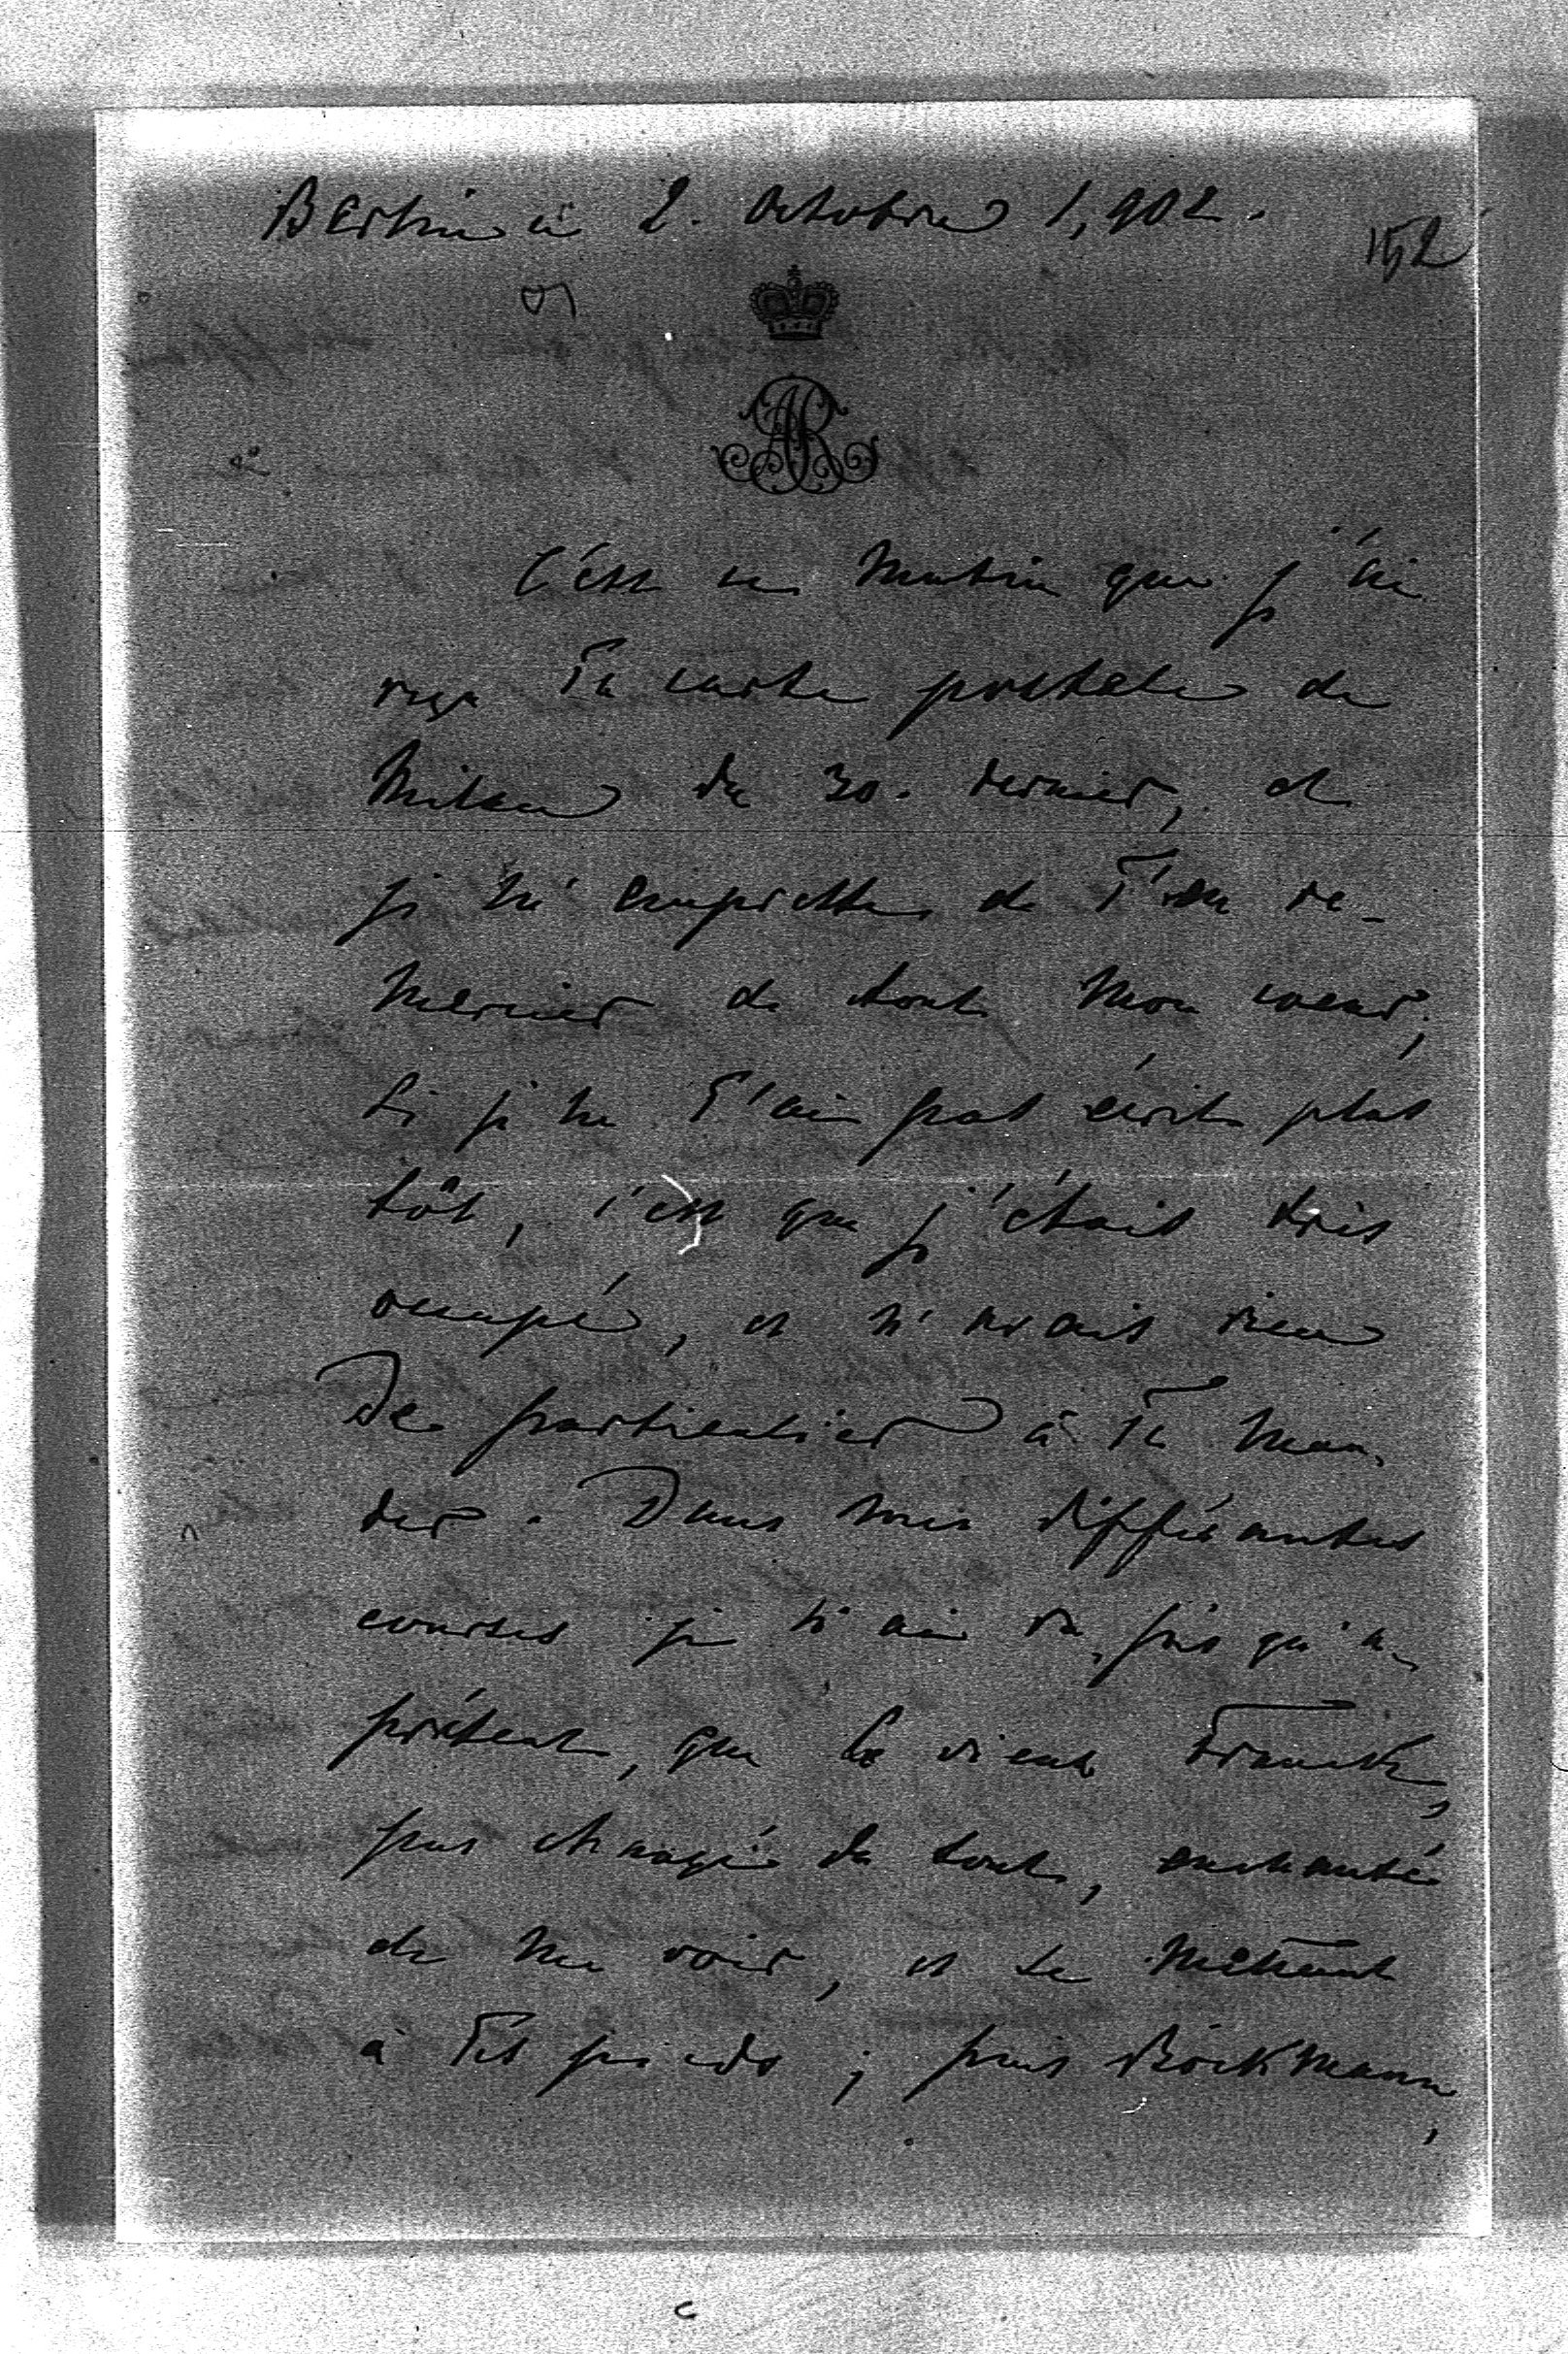 Berlin à 2. Octobre 1,902.
152
AR
C'est ce matin que j'ai
reçu Ta carte postale de
Milan du 30. dernier, et
je m'empresse de T'en re-
mercier de tout mon coeur;
si je ne T'ai pas écrit plus
tôt, c'est que j'étais très
occupé, et n'avais rien
de particulier à Te man-
der. Dans mes différantes
courses je n'ai vu, jus qu'à
présent, que le vieux Franck,
pas changé du tout, enchanté
de me voir, et se mettant
à Tes pieds; puis Böckmann,